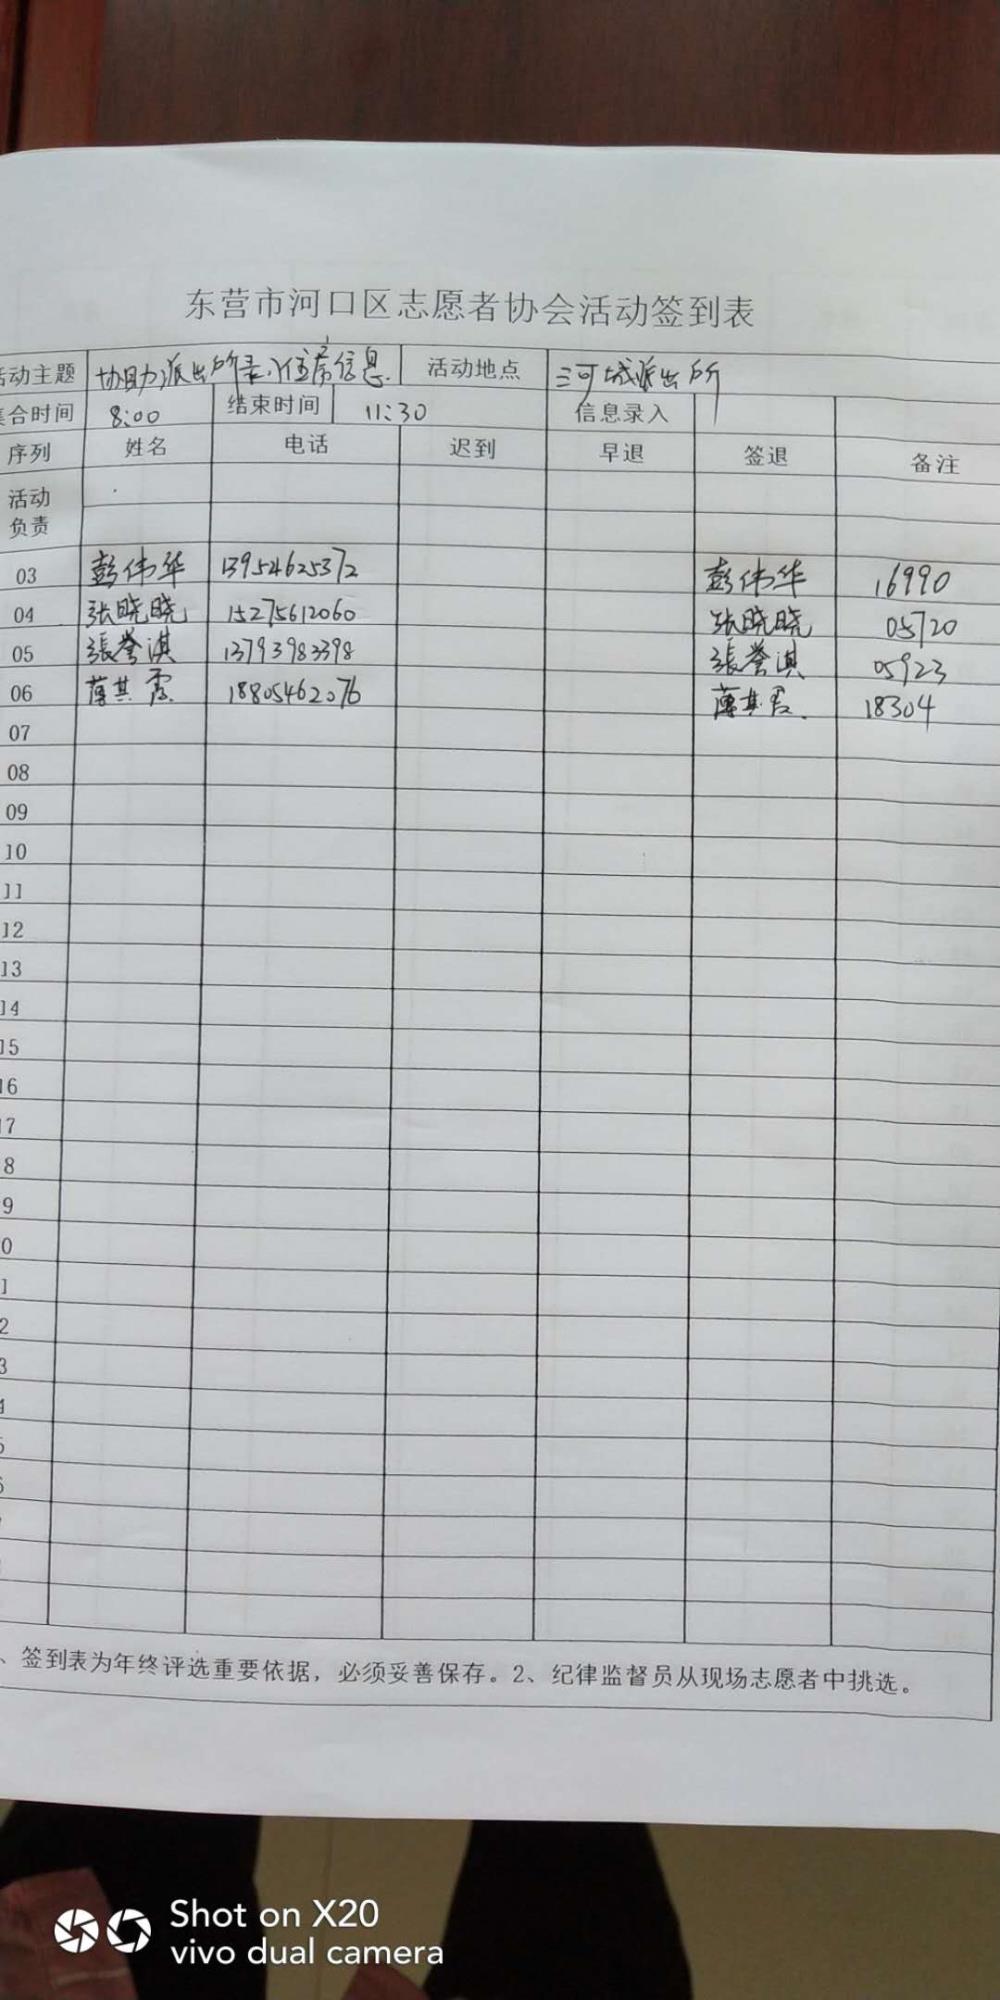 东营市河口区志愿者协会活动签到表
活动主题 协助派出所录入住房信息 活动地点 河城派出所
集合时间 8:00 结束时间 11:30 信息录入
序列 姓名 电话 迟到 早退 签退 备注
活动
负责
03 彭伟华 13954625372 彭伟华 16990
04 张晓晓 15275612060 张晓晓 05720
05 張誉淇 13793983398 張誉淇 05923
06 薄其霞 18805462076 薄其霞 18304
07
08
09
10
11
12
13
14
15
16
17
8
9
0
1
2
3
、签到表为年终评选重要依据，必须妥善保存。2、纪律监督员从现场志愿者中挑选。
Shot on X20
vivo dual camera